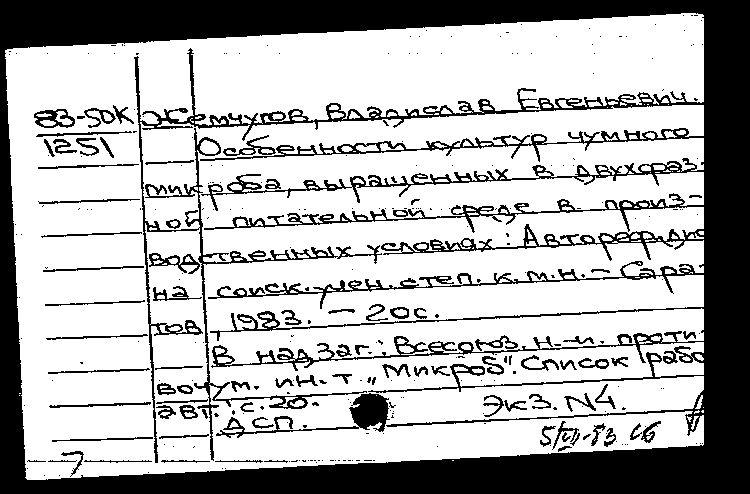 83-5DK Жемчугов, Владислав Евгеньевич.
1251 Особенности культур чумного
микроба, выращенных в двухфаз-
ной питательной среде в произ-
водственных условиях: Автореф. дис
на соиск. учен. степ. к.м.н. – Сара-
тов, 1983. – 20с.
В надзаг.: Всесоюз. н.-и. проти-
вочум. ин-т „Микроб". Список рабо
авт.: с. 20.
Экз. N4.
ДСП.
7